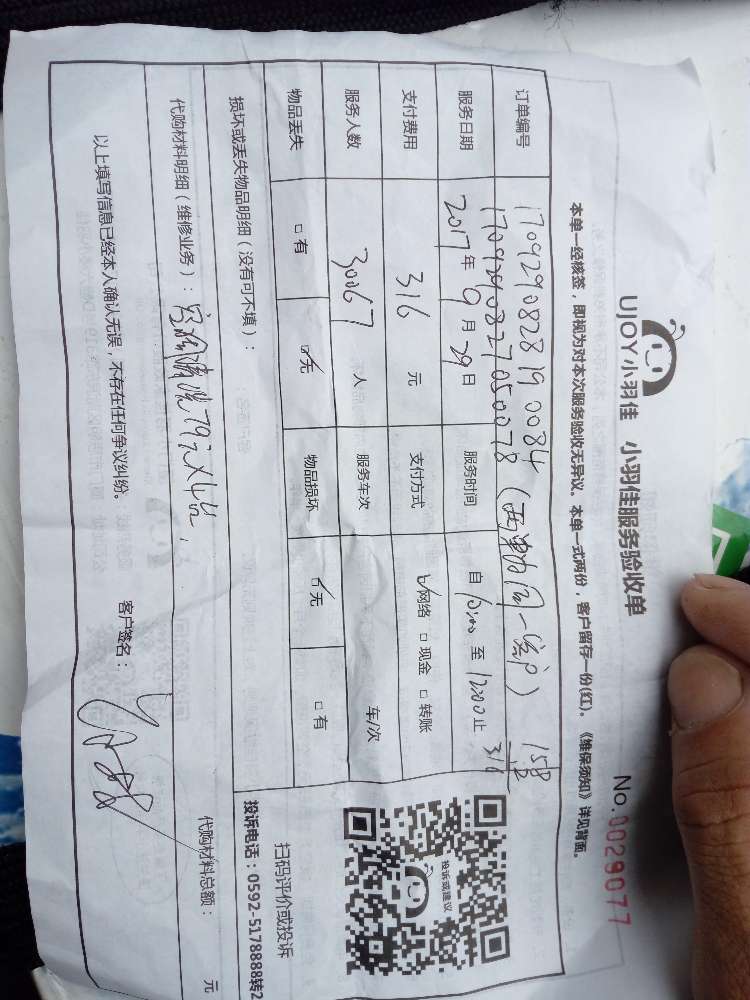 UJOY小羽佳 小羽佳服务验收单
No.0029077
本单一经核签，即视为对本次服务验收无异议。本单一式两份，客户留存一份(红)。《维保须知》详见背面。
订单编号 170929082819 0084 158
170929083270500078 (两张同一客户) 316
服务日期 2017年9月29日 服务时间 自10:00至12:00止
支付费用 316 元 支付方式 网络 现金 转账
服务人数 30067 人 服务车次 车/次
物品丢失 有 无 物品损坏 无 有
损坏或丢失物品明细（没有可不填）：
代购材料明细（维修业务）： 清洗79元X4台，
代购材料总额： 元
以上填写信息已经本人确认无误，不存在任何争议纠纷。 客户签名：
投诉或建议
扫码评价或投诉
投诉电话：0592-5178888转2